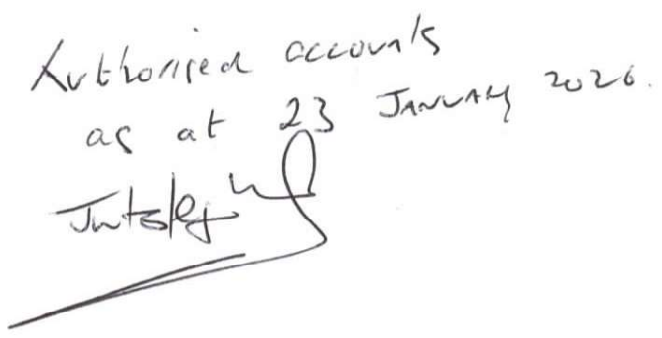 Authorised accounts
as at 23 JANUARY 2026.